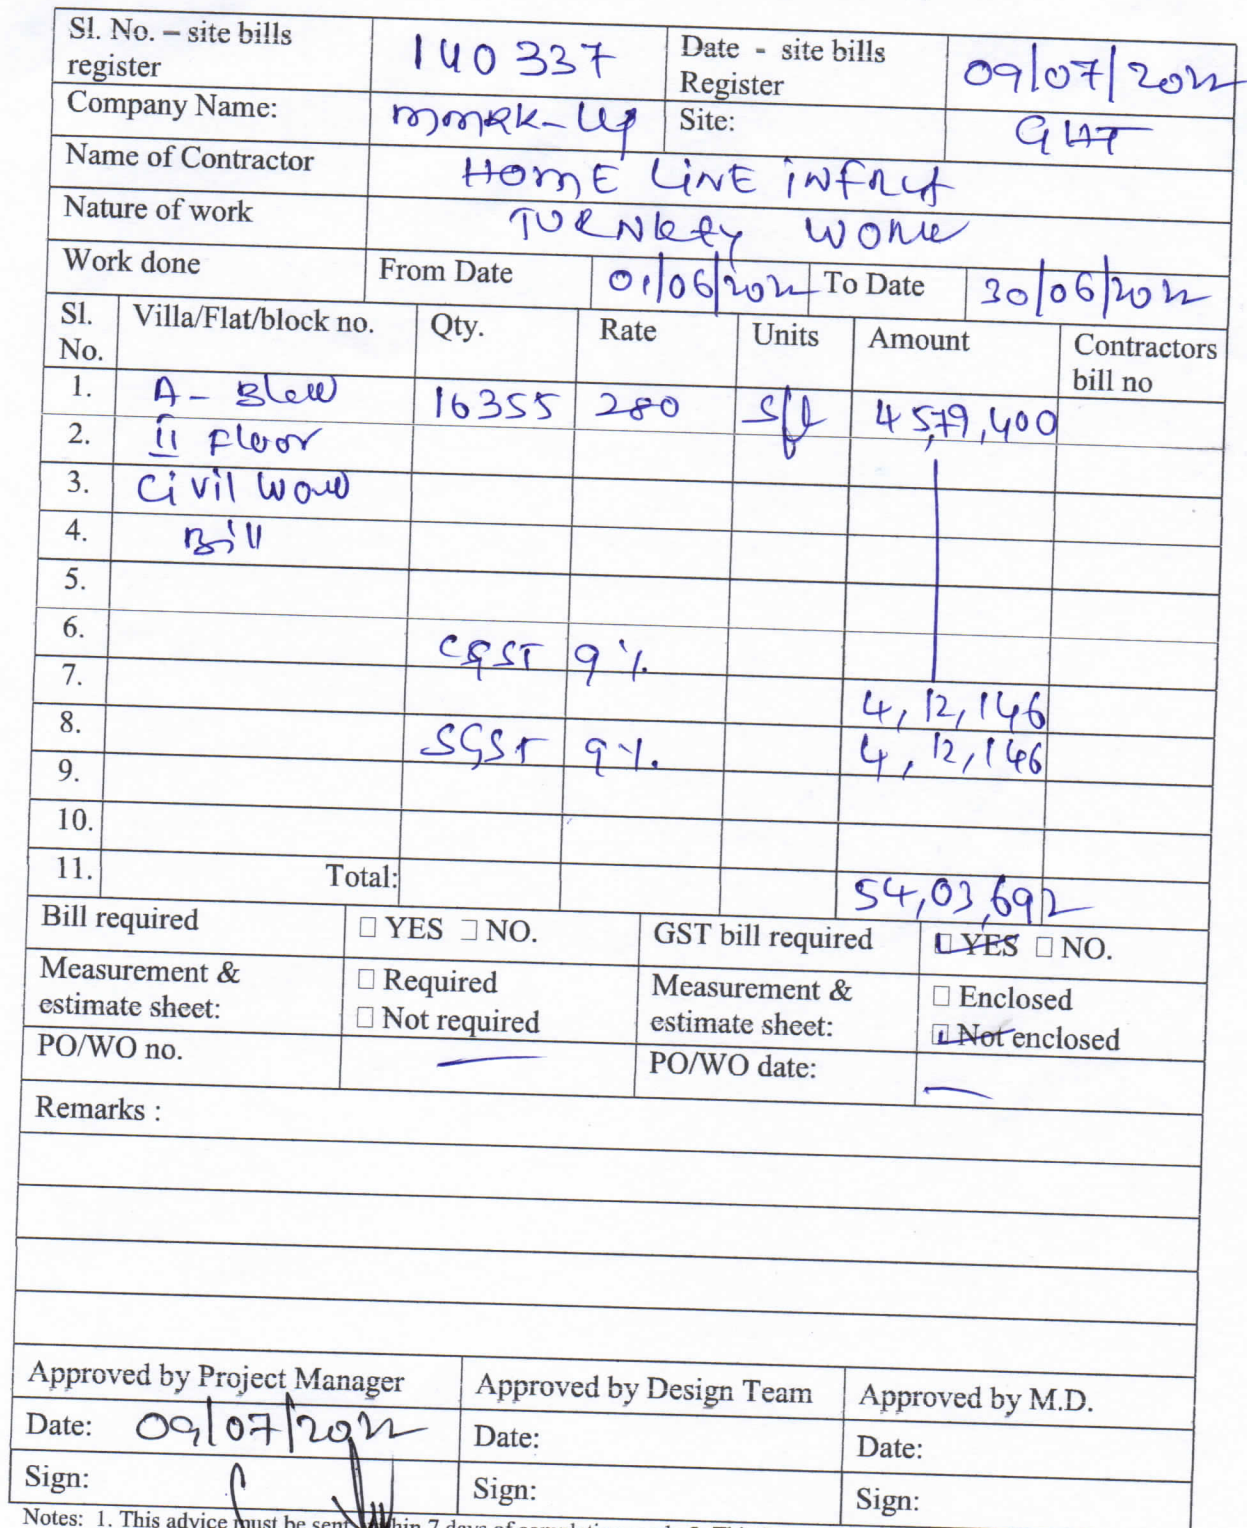 Sl. No. – site bills register 140337 Date - site bills Register 09/07/2022
Company Name: Site: GHT
Name of Contractor HOME LINE INFRA
Nature of work TURNKEY WORK
Work done From Date 01/06/2022 To Date 30/06/2022
Sl. No. Villa/Flat/block no. Qty. Rate Units Amount Contractors bill no
1. A - Block 16355 280 sft 4579,400
2. II Floor
3. Civil Work
4. Bill
5.
6. CGST 9%
7. 4,12,146
8. SGST 9%. 4,12,146
9.
10.
11. Total: 54,03,692
Bill required □ YES □ NO. GST bill required □ YES □ NO.
Measurement & estimate sheet: □ Required □ Not required Measurement & estimate sheet: □ Enclosed □ Not enclosed
PO/WO no. — PO/WO date: —
Remarks :
Approved by Project Manager Approved by Design Team Approved by M.D.
Date: 09/07/2022 Date: Date:
Sign: Sign: Sign:
Notes: 1. This advice must be sent within 7 days of